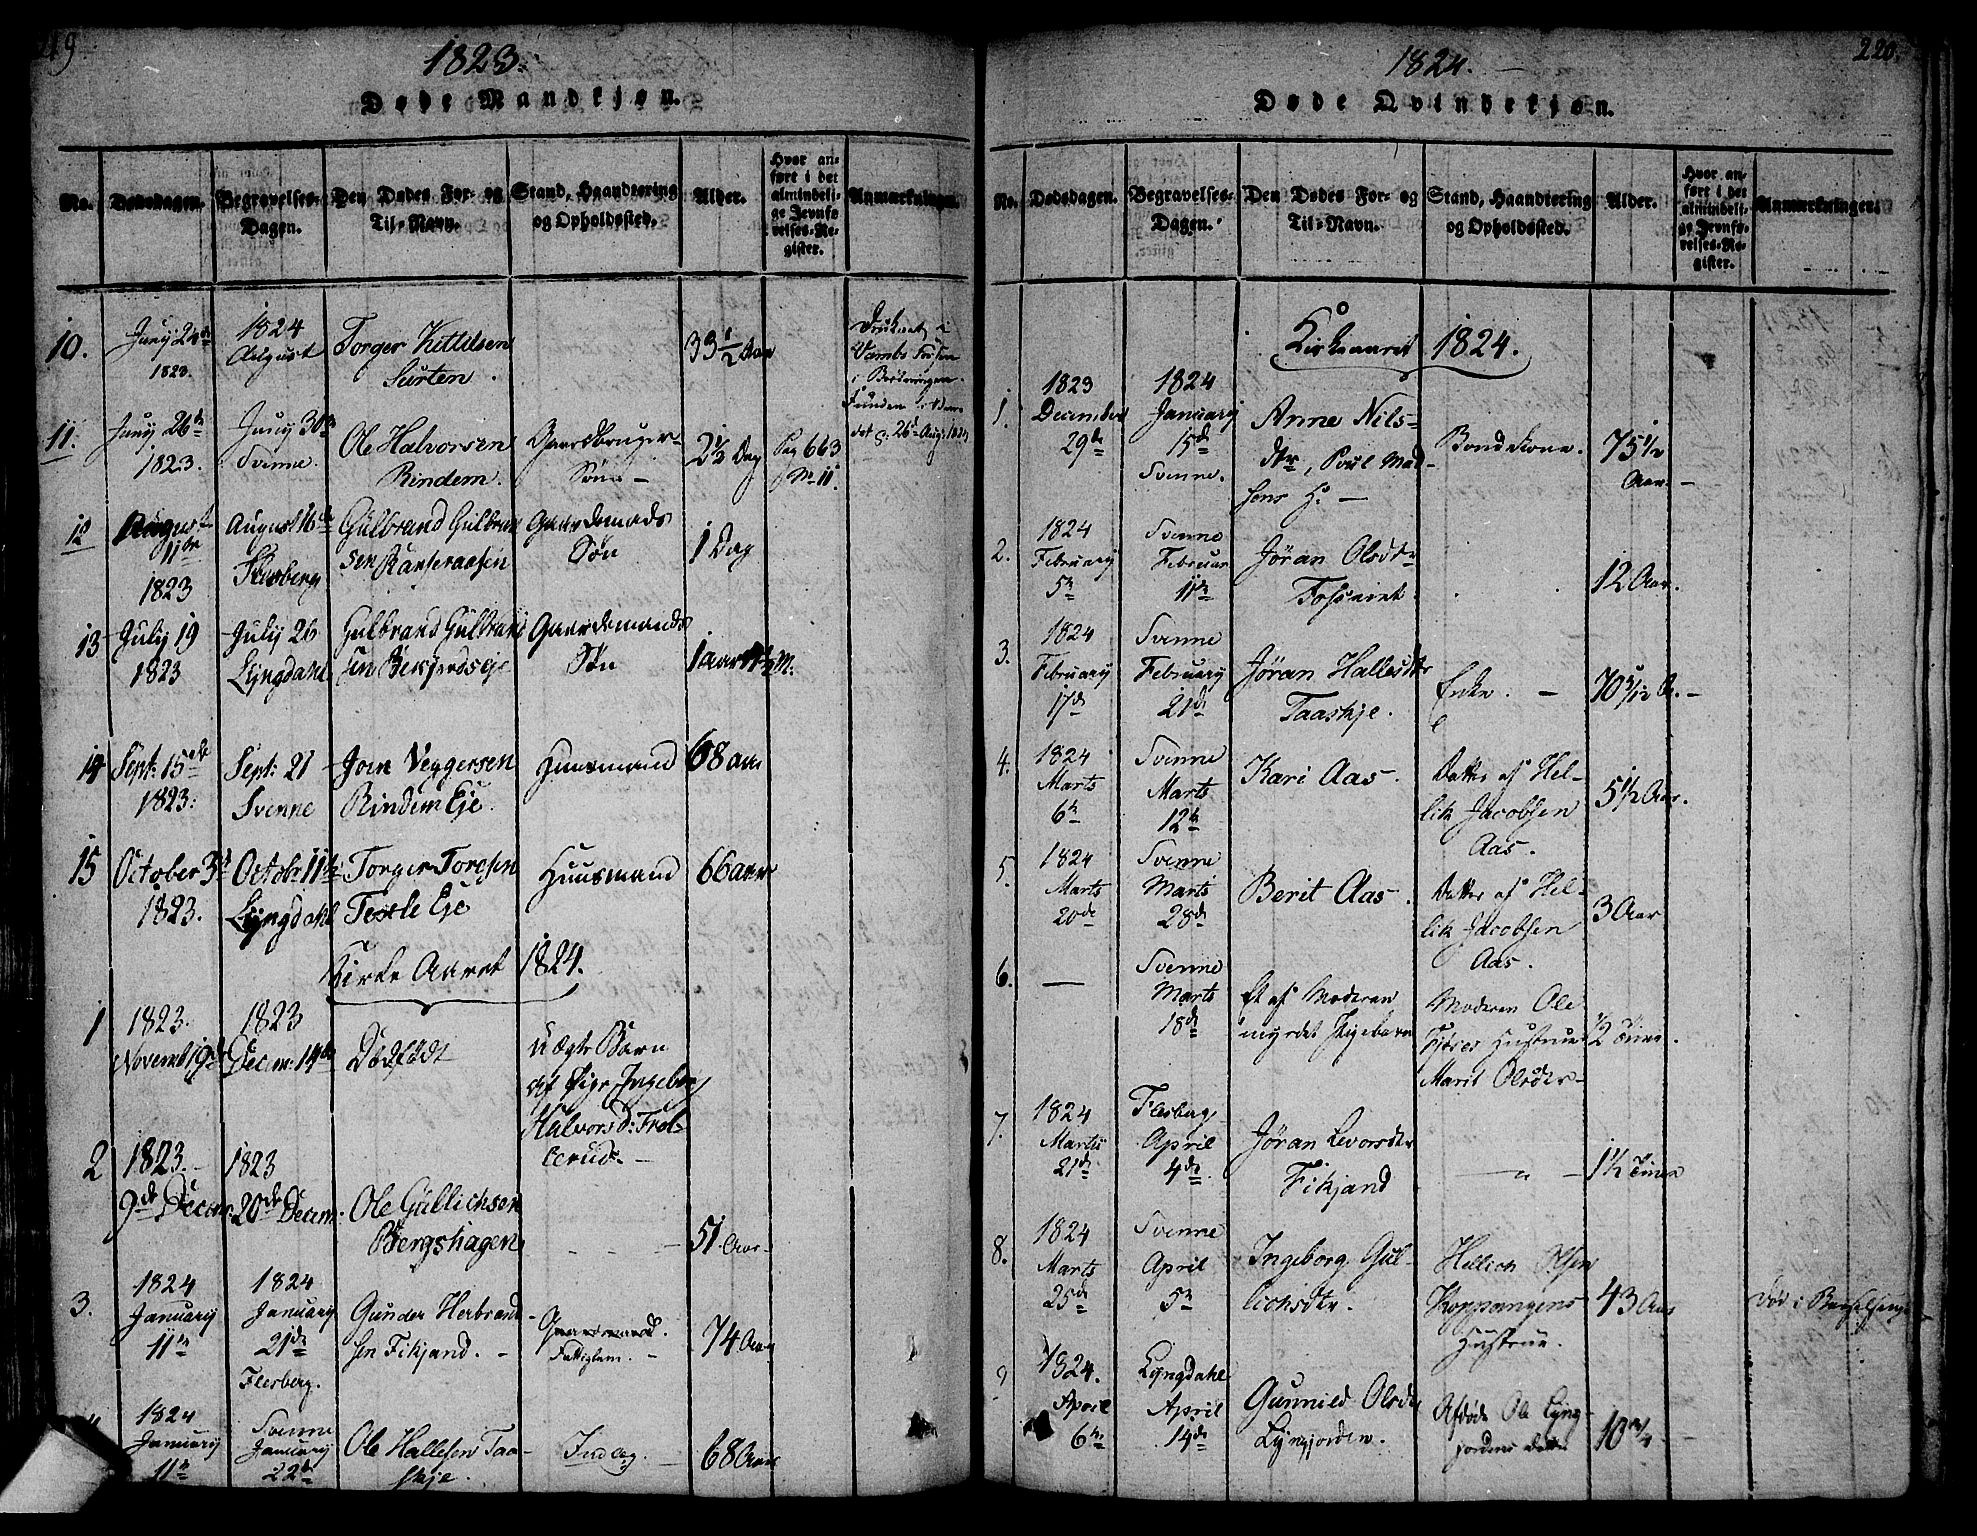 19
1823.
Døde Mandkjøn.
No.
Dødsdagen.
Begravelses-
Dagen.
Den Dødes For- og
Til-Navn.
Stand, Haandtering
og Opholdssted.
Alder.
Hvor an-
ført i det
almindeli-
ge Jevnfø-
relses-Re-
gister.
Anmærkninger.
10.
Juny 24de
1823.
1824
August
Torger Kittilsen
Surten.
33 1/2 Aar
Druknet i
Funden
d. 26 Aug: 1824
11.
Juny 26de
1823.
Juny 30te
Svenne.
Ole Halvorsen
Rindem.
Gaardbruger-
Søn -
2 1/2 Dag
Pag 663
No 11.
12
August
11te
1823
August 16de
Flesberg
Gulbrand Gulbran
sen
Gaardmads
Søn
1 Dag
13
July 19
1823
July 26
Lyngdahl
Gulbrand Gulbrand
sen
Gaardemands
Søn
1 aar
M:
14
Sept: 15
1823:
Sept: 21
Svenne
Joen Veggersen
Rindem Eje.
Huusmand
68 aar
15
October 3
1823.
Octobr 11te
Lyngdahl
Torger Toresen
Teele Eje
Huusmand
66 aar
Kirke Aaret 1824.
1
1823.
Novemb 19de
1823
Decem: 14de
Dødfødt
Uægte Barn
af Pige Ingeborg
Halvorsd: Fröl-
2
1823.
9de Decem:
1823
20de Decem:
Ole Gullichsen
Bergshagen
51 Aar
3.
1824
January
11te
1824
January
21de
Flesberg.
Gunder Herbrand
sen Fikjand. -
Gaardmand.
Fattiglem. -
74 Aar
1824
January
11te
Svenne
January
22de
Ole Hallesen Taa-
skje.
Indleg.
68 Aar
1824.
220.
Døde Qvindekjøn.
No.
Dødsdagen.
Begravelses-
Dagen.
Den Dødes For- og
Til-Navn.
Stand, Haandtering
og Opholdssted.
Alder.
Hvor an-
ført i det
almindeli-
ge Jevnfø-
relses-Re-
gister.
Anmærkninger.
Kirkeaaret 1824.
1.
1823
December
29de
1824
January
15de
Svenne.
Anne Nils-
dtr, Poul Mad-
sens H: -
Bondekone.
75 1/2
Aar. -
2.
1824
February
5te
Svenne
Februar
11te
Jöran Olsdtr
12 Aar.
3.
1824
February
17de
Svenne
February
21de
Jöran Hallesdtr
Taaskje.
Enke. -
70 5/12 A. -
4.
1824
Marts
6te
Svenne
Marts
12te
Kari Aas.
Datter af Hel-
lik Jacobsen
Aas.
5 1/2 Aar.
5.
1824
Marts
20de
Svenne
Marts
28de
Berit Aas.
Datter af Hel-
lik Jacobsen
Aas.
3 Aar
6.
-
Svenne
Marts
18de
Et af Moderen
myrdet Pigebarn
Moderen Ole
Hustrue
Marit Olsdtr-
1/2 Time.
7.
1824
Marts
21de
Flesberg
April
4de
Jöran Levorsdtr
Fikjand
" -
1 1/2 Time
8.
1824
Marts
25de
Svenne
April
5te
Ingeborg Gul-
lichsdtr.
Hellich Olsen
Koppangens
Hustrue.
43 Aar
død i Barselseng
9
1824.
April
6te
Lyngdahl
April
14de
Gunnild Olsdtr
Lyngjorden.
Afdøde Ole Lyng-
jordens datter
10